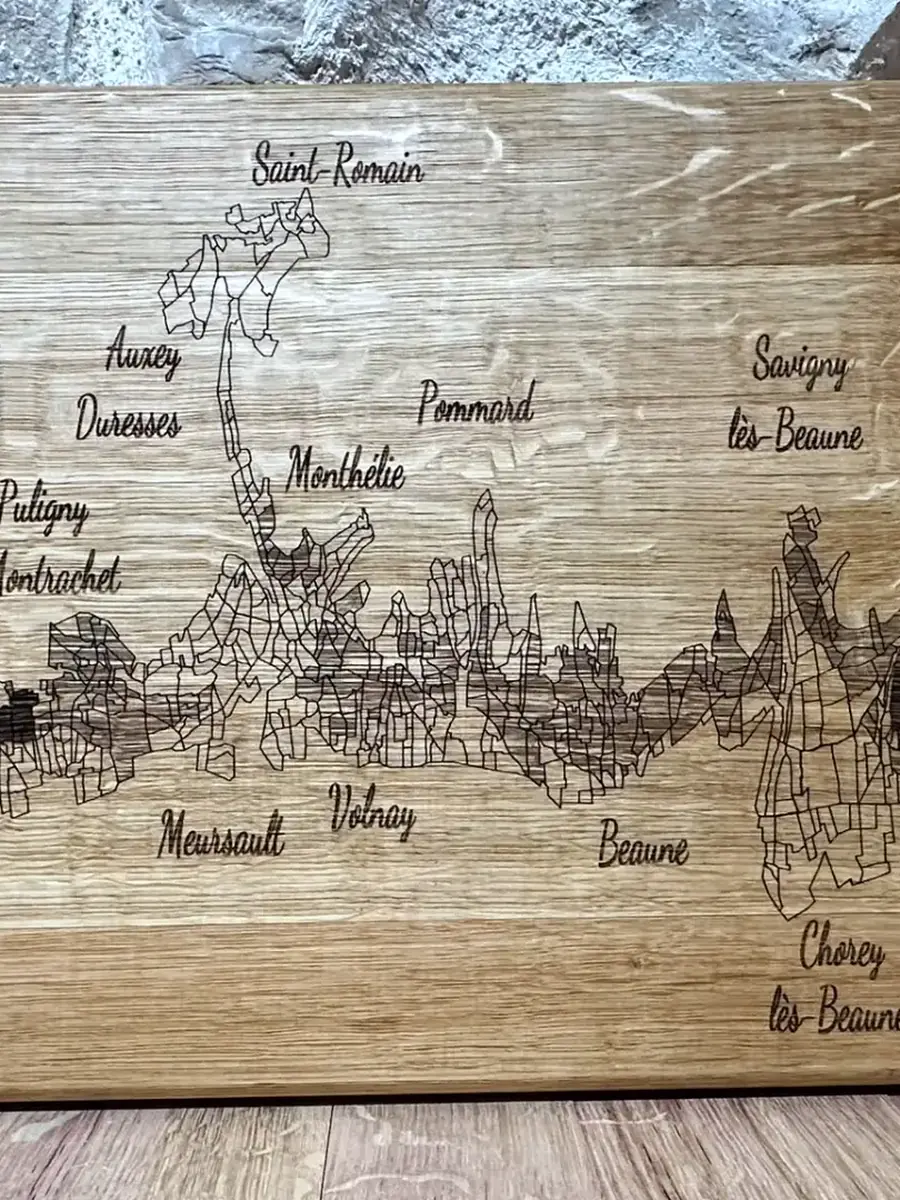 Saint-Romain
Auxey
Duresses
Pommard
Savigny
lès-Beaune
Monthélie
Puligny
Montrachet
Meursault
Volnay
Beaune
Chorey
lès-Beaune